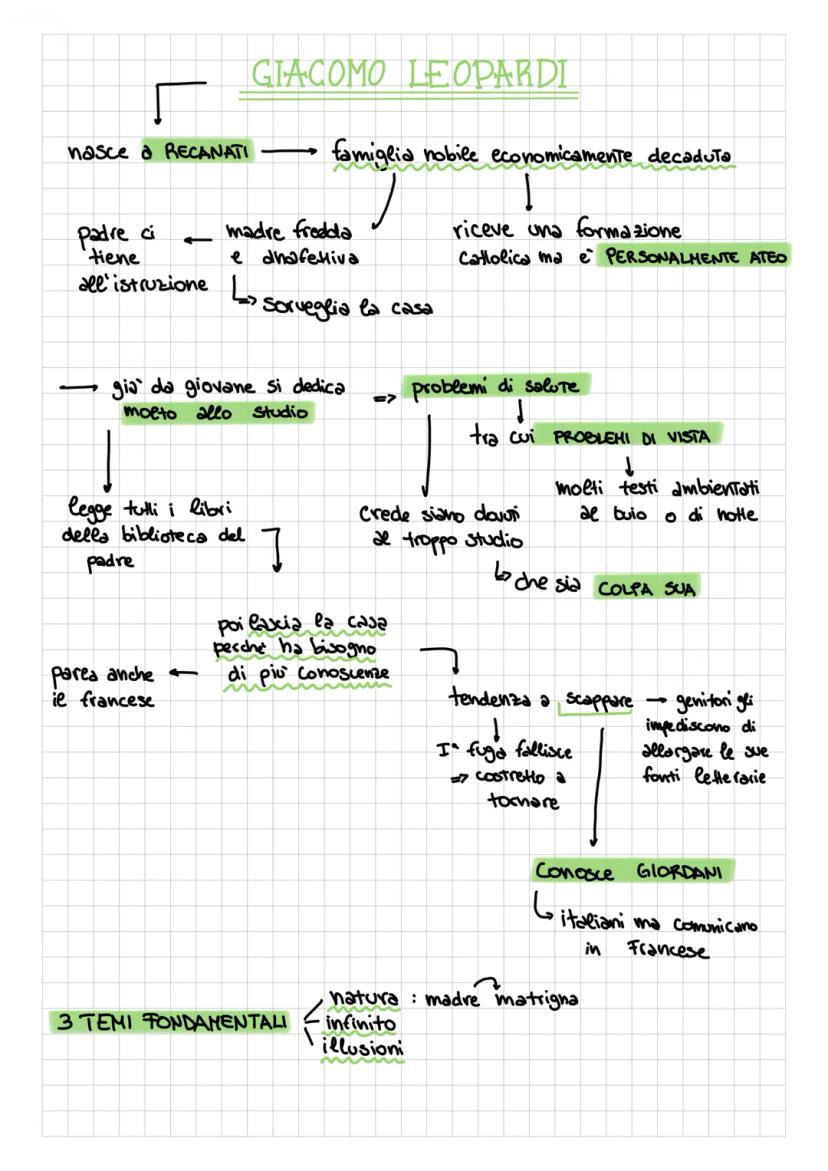 GIACOMO LEOPARDI
nasce a RECANATI → famiglia nobile economicamente decaduta
padre ci
tiene
all'istruzione
← madre fredda
e anaffettiva
↳ sorveglia la casa
riceve una formazione
cattolica ma è PERSONALMENTE ATEO
→ già da giovane si dedica
molto allo studio
=> problemi di salute
tra cui PROBLEMI DI VISTA
molti testi ambientati
al buio o di notte
legge tutti i libri
della biblioteca del
padre
Crede siano dovuti
al troppo studio
↳ che sia COLPA SUA
poi lascia la casa
perché ha bisogno
di più conoscenze
parla anche ←
il francese
tendenza a scappare → genitori gli
impediscono di
allargare le sue
fonti letterarie
Iª fuga fallisce
=> costretto a
tornare
Conosce GIORDANI
↳ italiani ma comunicano
in Francese
3 TEMI FONDAMENTALI
natura : madre matrigna
infinito
illusioni